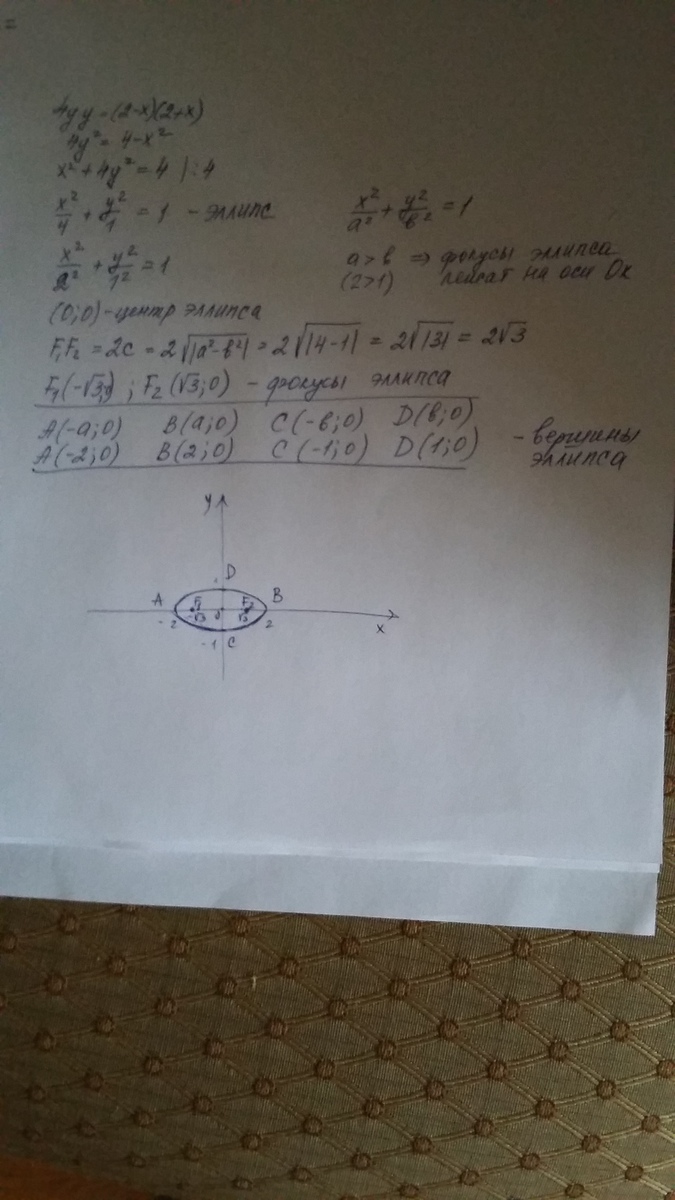 =
4yy = (2-x)(2+x)
4y² = 4-x²
x² + 4y² = 4 | :4
x²/4 + y²/1 = 1 - эллипс
x²/a² + y²/в² = 1
x²/2² + y²/1² = 1
a > в ⇒ фокусы эллипса
(2>1) лежат на оси Ox
(0;0) - центр эллипса
F₁F₂ = 2c = 2√|a²-в²| = 2√|4-1| = 2√|3| = 2√3
F₁(-√3;0) ; F₂(√3;0) - фокусы эллипса
A(-a;0) B(a;0) C(-в;0) D(в;0)
A(-2;0) B(2;0) C(-1;0) D(1;0) - вершины
эллипса
y
D
A F₁ F₂ B
-2 -√3 0 √3 2 x
-1 C